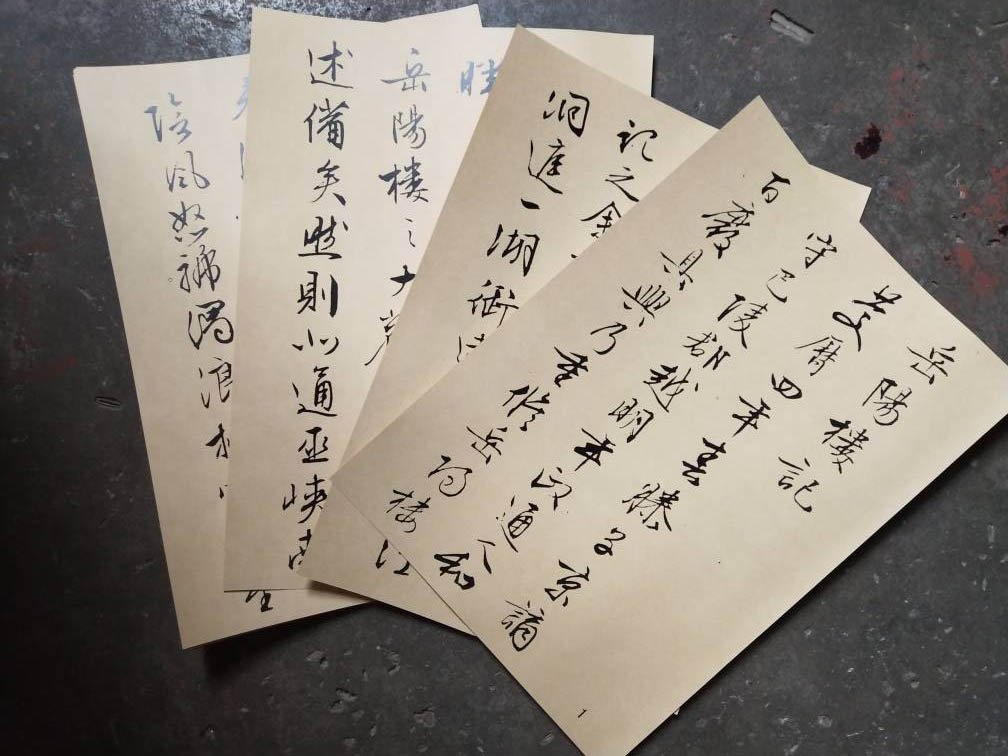 岳陽楼記
慶曆四年春滕子京謫
守巴陵郡越明年政通人和
百廢具興乃重修岳陽楼
1
記之屬
洞庭一湖銜遠
江
勝
岳陽楼之大觀
述備矣然則北通巫峽南
陰風怒號濁浪排